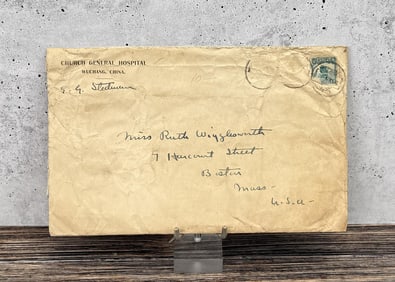 CHURCH GENERAL HOSPITAL
WUCHANG, CHINA.
E. G. Stedman
Miss Ruth Wigglesworth
7 Harcourt Street
Boston
Mass-
U.S.A-